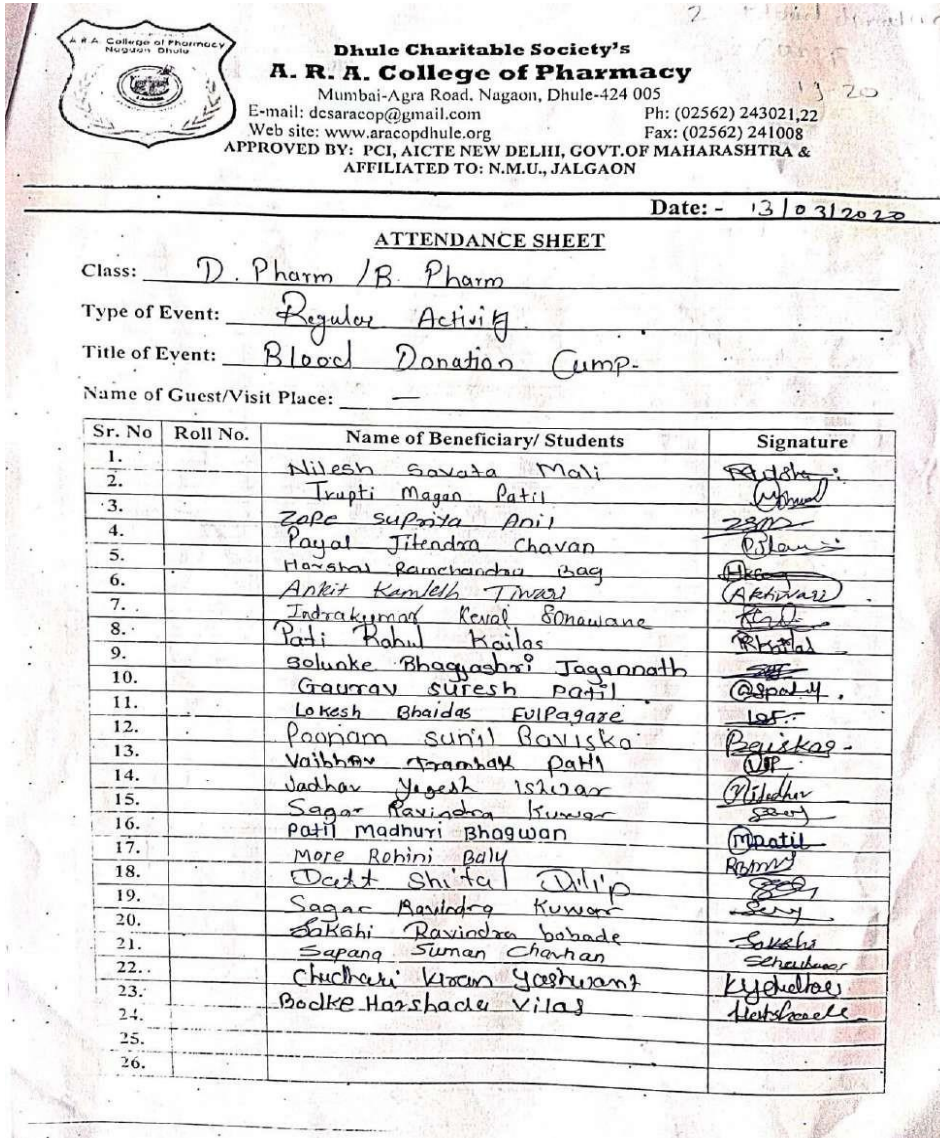 2 Blood donation
Camp
19-20
A.R.A. College of Pharmacy
Nagaon Dhule
Dhule Charitable Society's
A. R. A. College of Pharmacy
Mumbai-Agra Road, Nagaon, Dhule-424 005
E-mail: dcsaracop@gmail.com Ph: (02562) 243021,22
Web site: www.aracopdhule.org Fax: (02562) 241008
APPROVED BY: PCI, AICTE NEW DELHI, GOVT.OF MAHARASHTRA &
AFFILIATED TO: N.M.U., JALGAON
Date: - 13/03/2020
ATTENDANCE SHEET
Class: D. Pharm /B. Pharm
Type of Event: Regular Activity
Title of Event: Blood Donation Cump-
Name of Guest/Visit Place: —
Sr. No Roll No. Name of Beneficiary/ Students Signature
1. Nilesh Savata Mali
2. Trupti Magan Patil
3. Zope Supriya Anil
4. Payal Jitendra Chavan
5. Harshal Ramchandra Bag
6. Ankit Kamlesh Tiwari Aktiwari
7. Indrakumar Keval Sonawane
8. Pati Rahul Kailas
9. Solunke Bhagyashri Jagannath
10. Gaurav Suresh Patil
11. Lokesh Bhaidas Fulpagare
12. Poonam Sunil Baviska
13. Vaibhav Trambak Patil VTP
14. Jadhav Yogesh Ishwar
15. Sagar Ravindra Kuwar
16. Patil Madhuri Bhagwan Mpatil
17. More Rohini Balu
18. Datt Shital Dilip
19. Sagar Ravindra Kuwar
20. Sakshi Ravindra bobade Sakshi
21. Sapana Suman Chavhan
22. Chudhari Kiran Yashwant
23. Bodke Harshada Vilas
24.
25.
26.